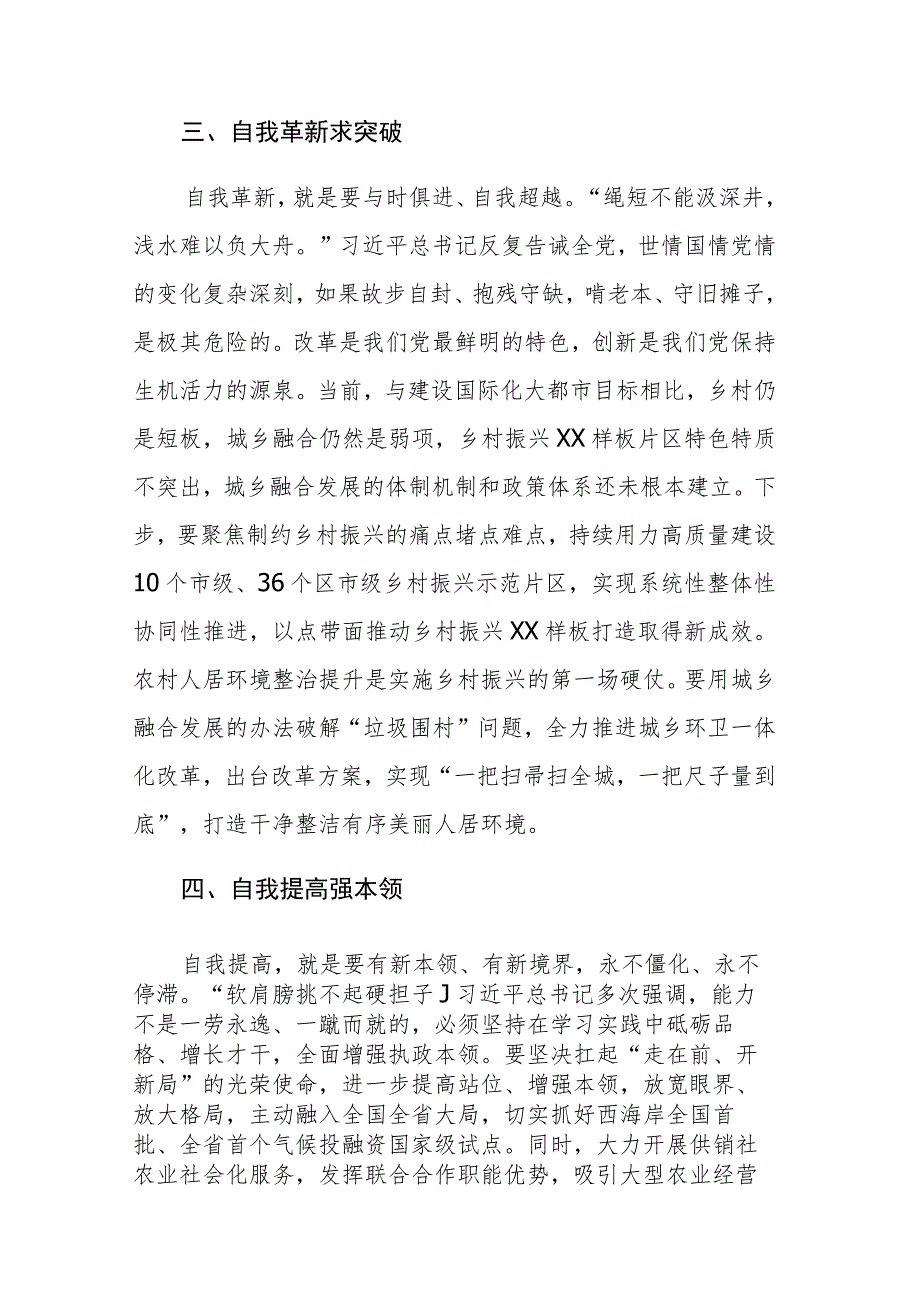 三、自我革新求突破
自我革新，就是要与时俱进、自我超越。“绳短不能汲深井，
浅水难以负大舟。”习近平总书记反复告诫全党，世情国情党情
的变化复杂深刻，如果故步自封、抱残守缺，啃老本、守旧摊子，
是极其危险的。改革是我们党最鲜明的特色，创新是我们党保持
生机活力的源泉。当前，与建设国际化大都市目标相比，乡村仍
是短板，城乡融合仍然是弱项，乡村振兴XX样板片区特色特质
不突出，城乡融合发展的体制机制和政策体系还未根本建立。下
步，要聚焦制约乡村振兴的痛点堵点难点，持续用力高质量建设
10个市级、36个区市级乡村振兴示范片区，实现系统性整体性
协同性推进，以点带面推动乡村振兴XX样板打造取得新成效。
农村人居环境整治提升是实施乡村振兴的第一场硬仗。要用城乡
融合发展的办法破解“垃圾围村”问题，全力推进城乡环卫一体
化改革，出台改革方案，实现“一把扫帚扫全城，一把尺子量到
底”，打造干净整洁有序美丽人居环境。
四、自我提高强本领
自我提高，就是要有新本领、有新境界，永不僵化、永不
停滞。“软肩膀挑不起硬担子J习近平总书记多次强调，能力
不是一劳永逸、一蹴而就的，必须坚持在学习实践中砥砺品
格、增长才干，全面增强执政本领。要坚决扛起“走在前、开
新局”的光荣使命，进一步提高站位、增强本领，放宽眼界、
放大格局，主动融入全国全省大局，切实抓好西海岸全国首
批、全省首个气候投融资国家级试点。同时，大力开展供销社
农业社会化服务，发挥联合合作职能优势，吸引大型农业经营